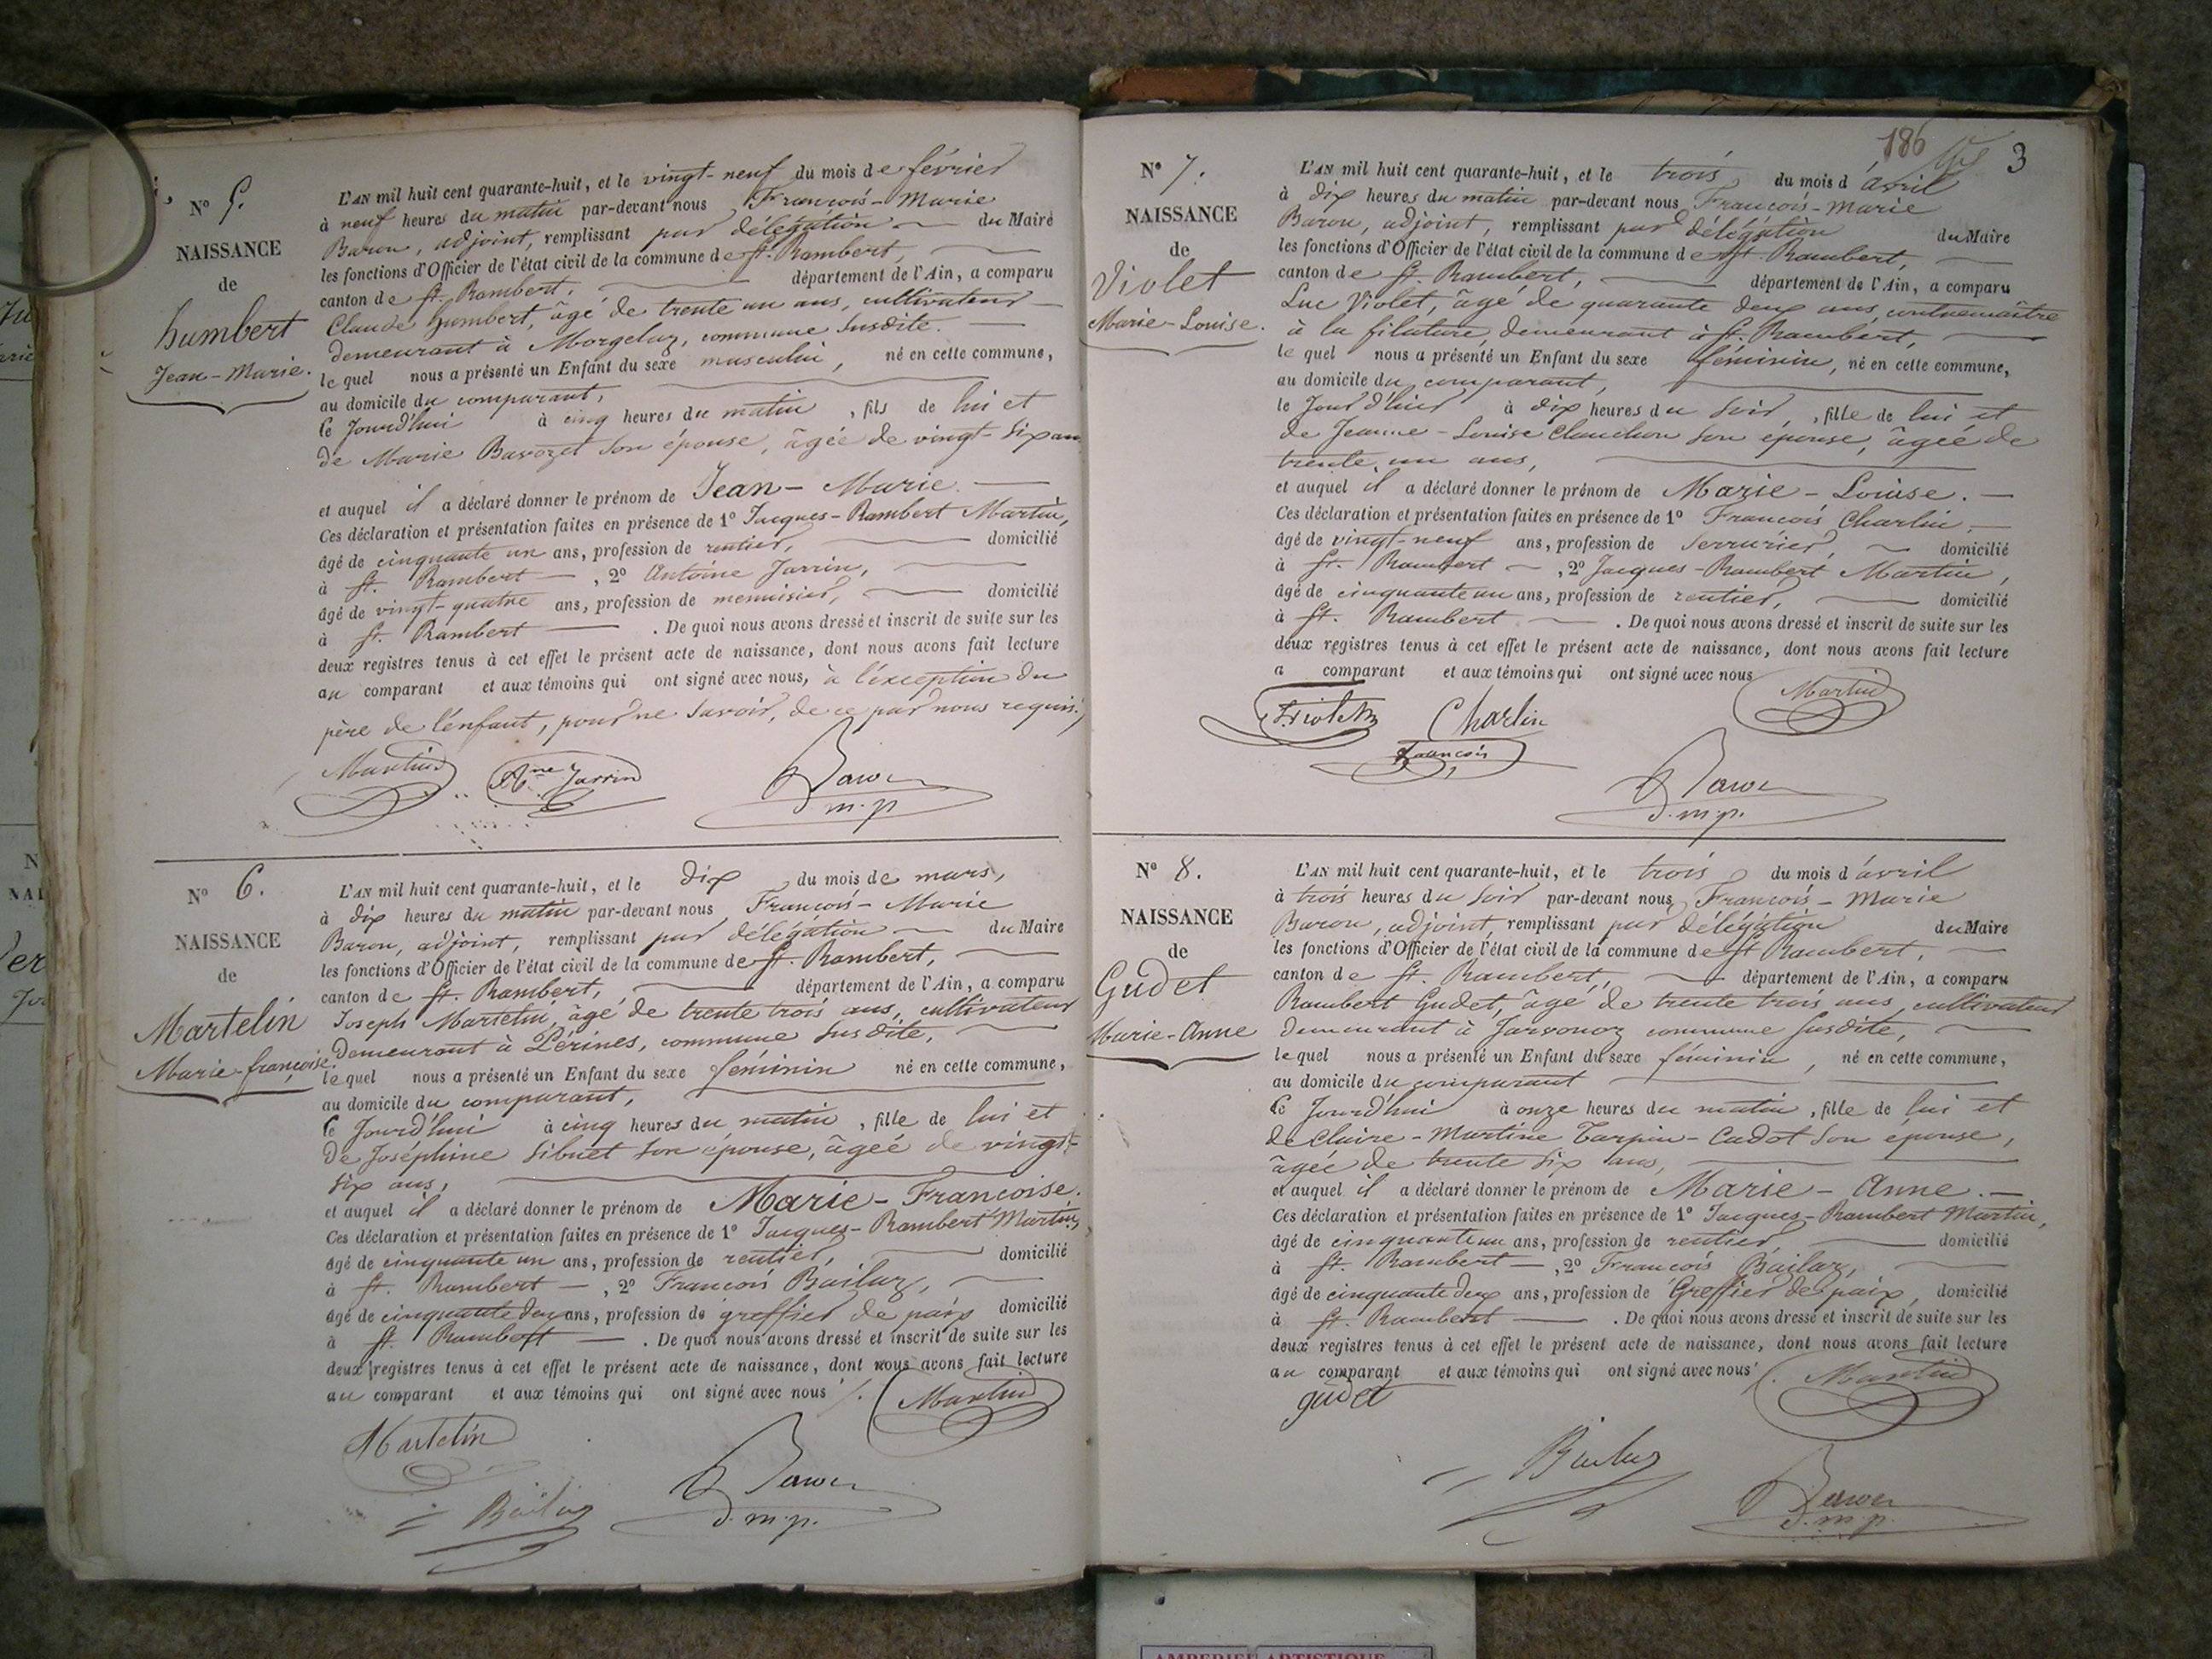 N° 5.
NAISSANCE
de
humbert
Jean-Marie.
L'AN mil huit cent quarante-huit, et le vingt-neuf du mois de février
à neuf heures du matin par-devant nous François-Marie
Baron, adjoint, remplissant par délégation du Maire
les fonctions d'Officier de l'état civil de la commune de St. Rambert,
canton de St. Rambert, département de l'Ain, a comparu
Claude humbert, âgé de trente un ans, cultivateur
demeurant à Morgelaz, commune susdite.
le quel nous a présenté un Enfant du sexe masculin, né en cette commune,
au domicile du comparant,
le Jourd'hui à cinq heures du matin, fils de lui et
de Marie Bavozet son épouse, âgée de vingt-six ans
et auquel il a déclaré donner le prénom de Jean-Marie.
Ces déclaration et présentation faites en présence de 1° Jacques-Rambert Martin,
âgé de cinquante un ans, profession de rentier, domicilié
à St. Rambert, 2° Antoine Jarrin,
âgé de vingt-quatre ans, profession de menuisier, domicilié
à St. Rambert. De quoi nous avons dressé et inscrit de suite sur les
deux registres tenus à cet effet le présent acte de naissance, dont nous avons fait lecture
au comparant et aux témoins qui ont signé avec nous, à l'éxception du
père de l'enfant, pour ne savoir, de ce par nous requis.
Martin Ane Jarrin Baron
d.m.p.
N° 6.
NAISSANCE
de
Martelin
Marie-françoise.
L'AN mil huit cent quarante-huit, et le dix du mois de mars,
à dix heures du matin par-devant nous François-Marie
Baron, adjoint, remplissant par délégation du Maire
les fonctions d'Officier de l'état civil de la commune de St. Rambert,
canton de St. Rambert, département de l'Ain, a comparu
Joseph Martelin, âgé de trente trois ans, cultivateur
demeurant à Lérines, commune susdite,
le quel nous a présenté un Enfant du sexe féminin né en cette commune,
au domicile du comparant,
le Jourd'hui à cinq heures du matin, fille de lui et
de Joséphine Sibuet son épouse, âgée de vingt-
six ans,
et auquel il a déclaré donner le prénom de Marie-Françoise.
Ces déclaration et présentation faites en présence de 1° Jacques-Rambert Martin,
âgé de cinquante un ans, profession de rentier, domicilié
à St. Rambert, 2° François Bailaz,
âgé de cinquante deux ans, profession de greffier de paix domicilié
à St. Rambert. De quoi nous avons dressé et inscrit de suite sur les
deux registres tenus à cet effet le présent acte de naissance, dont nous avons fait lecture
au comparant et aux témoins qui ont signé avec nous. Martin
Martelin
Bailaz Baron
d.m.p.
186
3
N° 7.
NAISSANCE
de
Violet
Marie-Louise.
L'AN mil huit cent quarante-huit, et le trois du mois d'avril
à dix heures du matin par-devant nous François-Marie
Baron, adjoint, remplissant par délégation du Maire
les fonctions d'Officier de l'état civil de la commune de St. Rambert,
canton de St. Rambert, département de l'Ain, a comparu
Luc Violet, âgé de quarante deux ans, contremaître
à la filature, demeurant à St. Rambert,
le quel nous a présenté un Enfant du sexe féminin, né en cette commune,
au domicile du comparant,
le Jour d'hier à dix heures du soir, fille de lui et
de Jeanne-Louise Clauchon son épouse, âgée de
trente un ans,
et auquel il a déclaré donner le prénom de Marie-Louise.
Ces déclaration et présentation faites en présence de 1° François Charlin,
âgé de vingt-neuf ans, profession de serrurier, domicilié
à St. Rambert, 2° Jacques-Rambert Martin,
âgé de cinquante un ans, profession de rentier, domicilié
à St. Rambert. De quoi nous avons dressé et inscrit de suite sur les
deux registres tenus à cet effet le présent acte de naissance, dont nous avons fait lecture
a comparant et aux témoins qui ont signé avec nous Martin
Violet Charlin
François
Baron
d.m.p.
N° 8.
NAISSANCE
de
Gudet
Marie-Anne
L'AN mil huit cent quarante-huit, et le trois du mois d'avril
à trois heures du soir par-devant nous François-Marie
Baron, adjoint, remplissant par délégation du Maire
les fonctions d'Officier de l'état civil de la commune de St Rambert,
canton de St. Rambert, département de l'Ain, a comparu
Rambert Gudet, âgé de trente trois ans, cultivateur
demeurant à Javronoz commune susdite,
le quel nous a présenté un Enfant du sexe féminin, né en cette commune,
au domicile du comparant
le Jourd'hui à onze heures du matin, fille de lui et
de Claire-Martine Tarpin-Cadot son épouse,
âgée de trente six ans,
et auquel il a déclaré donner le prénom de Marie-Anne.
Ces déclaration et présentation faites en présence de 1° Jacques-Rambert Martin,
âgé de cinquante un ans, profession de rentier, domicilié
à St. Rambert, 2° François Bailaz,
âgé de cinquante deux ans, profession de Greffier de paix, domicilié
à St. Rambert. De quoi nous avons dressé et inscrit de suite sur les
deux registres tenus à cet effet le présent acte de naissance, dont nous avons fait lecture
au comparant et aux témoins qui ont signé avec nous. Martin
gudet
Bailaz
Baron
d.m.p.